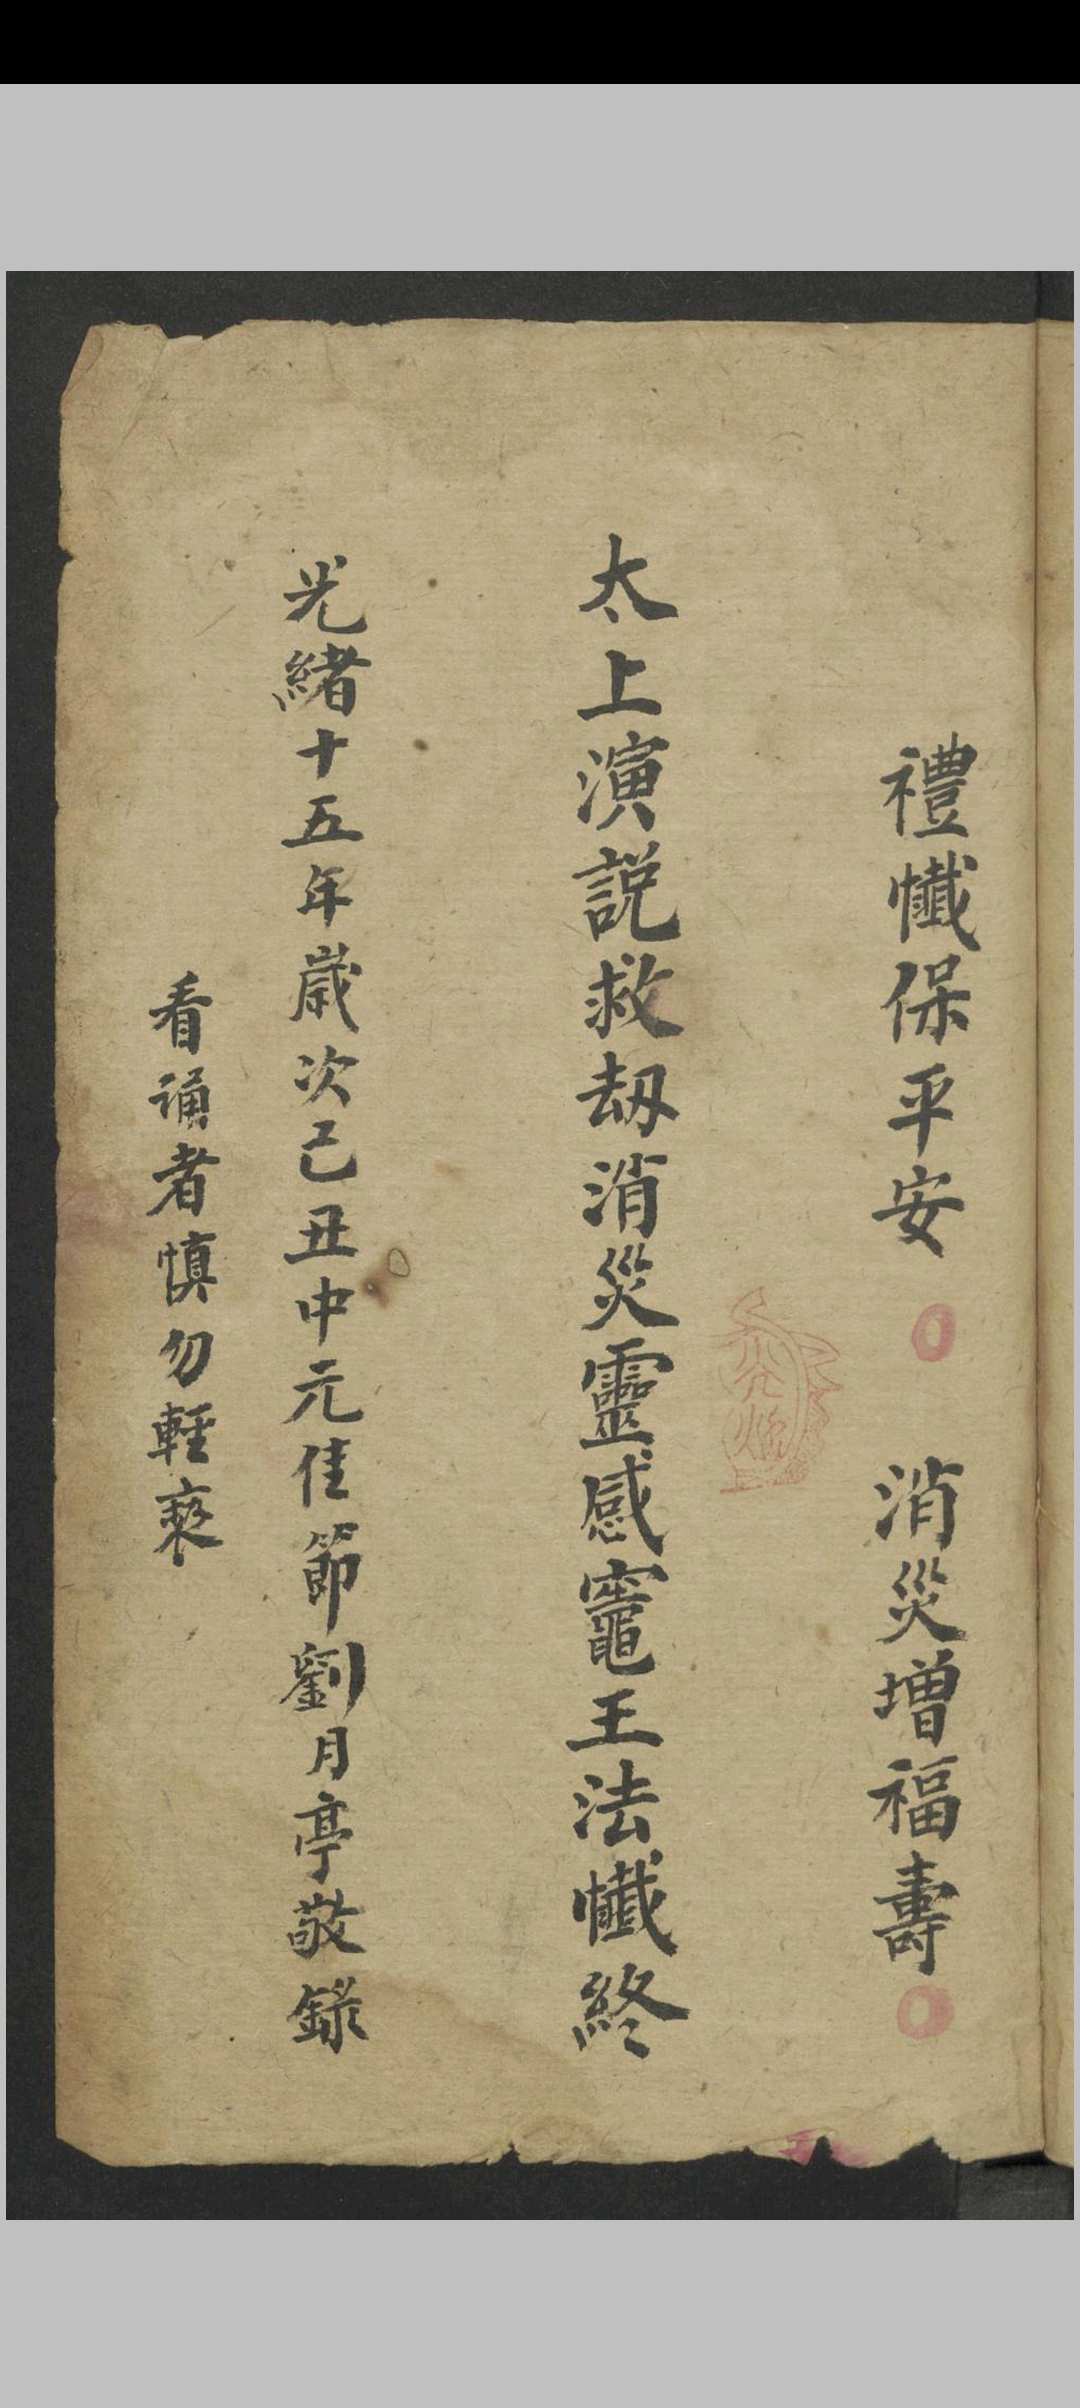 禮懺保平安 消災增福壽
太上演説救刼消災靈感竈王法懺終
光緒十五年歲次己丑中元佳節劉月亭敬錄
看誦者慎勿輕褻